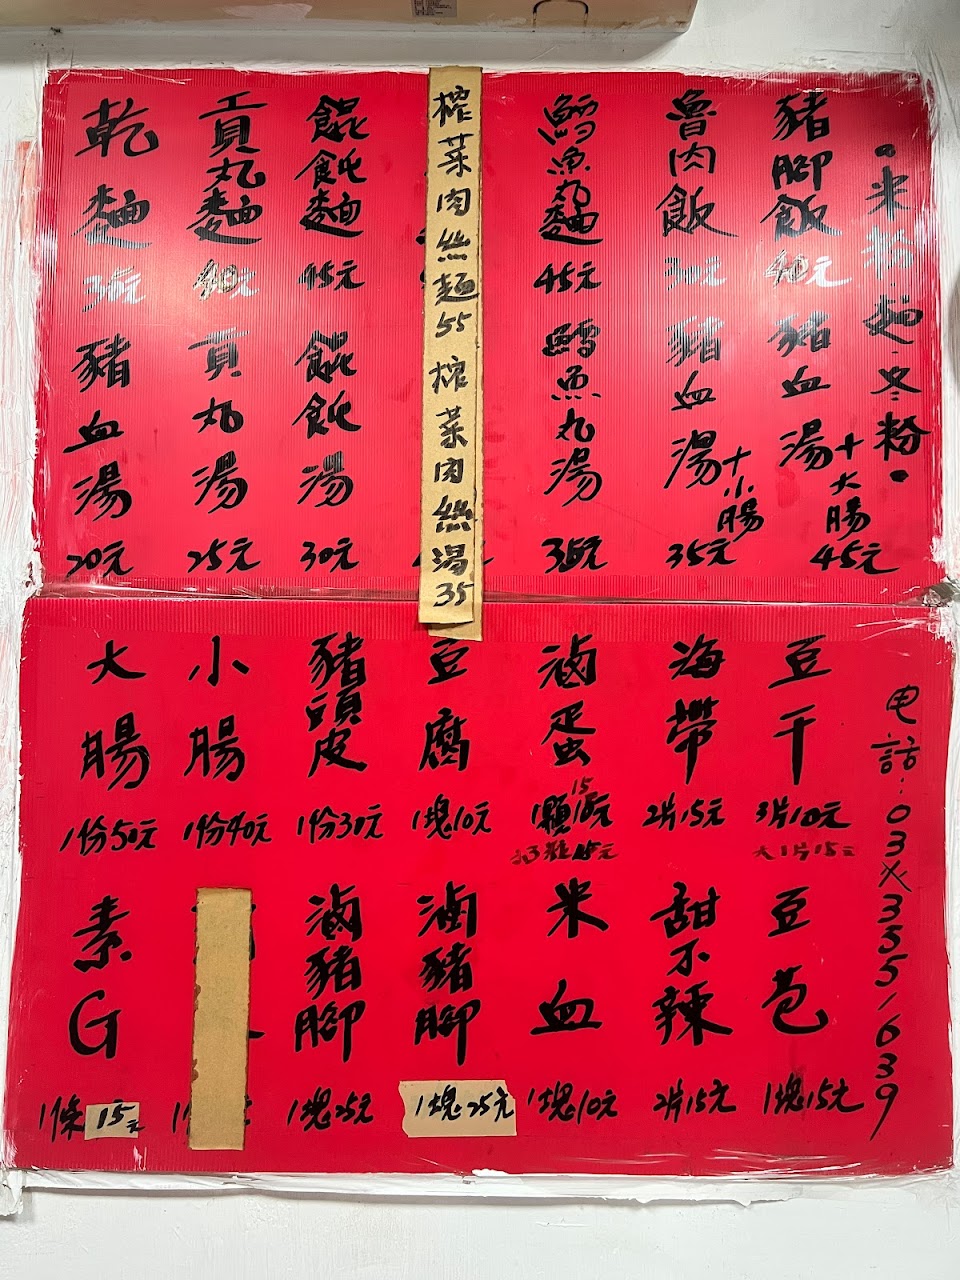 。米粉.麵.冬粉。
豬腳飯 40元
魯肉飯 30元
鱈魚丸麵 45元
榨菜肉絲麵55 榨菜肉絲湯35
餛飩麵 45元
貢丸麵 40元
乾麵 35元
豬血湯+大腸 45元
豬血湯+小腸 35元
鱈魚丸湯 35元
餛飩湯 30元
貢丸湯 25元
豬血湯 20元
电話:03-3551639
豆干 3片10元
大1片15元
海帶 2片15元
滷蛋 1顆15元
豆腐 1塊10元
豬頭皮 1份30元
小腸 1份40元
大腸 1份50元
豆苞 1塊15元
甜不辣 2片15元
米血 1塊10元
滷豬腳 1塊25元
滷豬腳 1塊25元
素G 1條15元